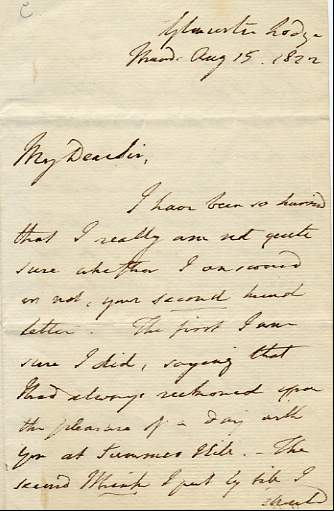 Gloucester Lodge
Thursd. Aug 15. 1822
My Dear Sir,
I have been so hurried
that I really am not quite
sure whether I answered
or not, your second kind
letter. The first I am
sure I did, saying that
I had always reckoned upon
the pleasure of a day with
you at Summer Hill. – The
second I think I put by till I
should